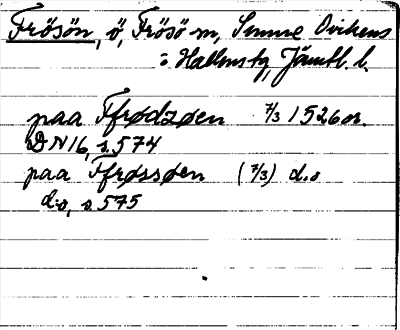 Frösön, ö, Frösö sn, Sunne Ovikens
o. Hallens tg, Jämtl. l.
paa Ffrødzøen 7/3 1526 or.
DN 16, s. 574
paa Ffrøssøen (7/3) d:o
d:o, s. 575